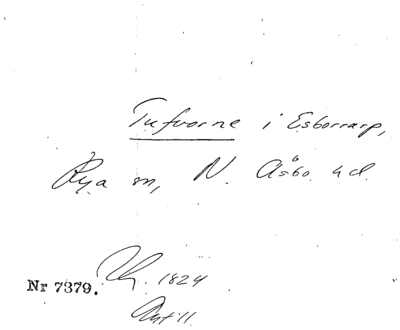 Tufvorne i Esborrarp,
Rya sn, N. Åsbo hd.
Nr 7379. 1824